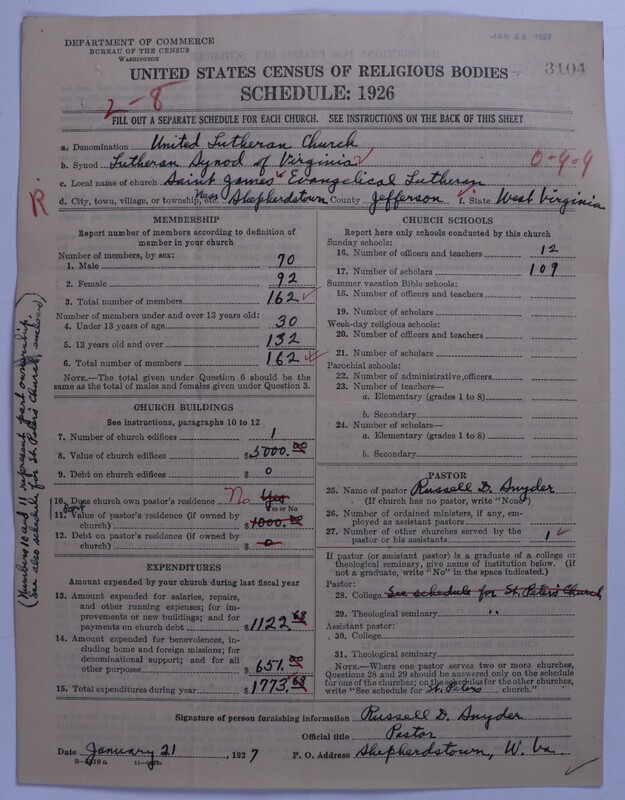 DEPARTMENT OF COMMERCE
BUREAU OF THE CENSUS
WASHINGTON
UNITED STATES CENSUS OF RELIGIOUS BODIES
3104
SCHEDULE: 1926
2-8
FILL OUT A SEPARATE SCHEDULE FOR EACH CHURCH. SEE INSTRUCTIONS ON THE BACK OF THIS SHEET
a. Denomination United Lutheran Church
b. Synod Lutheran Synod of Virginia
0-9-9
c. Local name of church Saint James' Evangelical Lutheran
R
d. City, town, village, or township, etc. Near Shepherdstown County Jefferson f. State West Virginia
MEMBERSHIP
Report number of members according to definition of
member in your church
Number of members, by sex:
1. Male 70
2. Female 92
3. Total number of members 162
Number of members under and over 13 years old:
4. Under 13 years of age 30
5. 13 years old and over 132
6. Total number of members 162
NOTE.—The total given under Question 6 should be
same as the total of males and females given under Question 3.
CHURCH BUILDINGS
See instructions, paragraphs 10 to 12
7. Number of church edifices 1
8. Value of church edifices $5000.00
9. Debt on church edifices $0
10. Does church own pastor's residence No Yes
Yes or No
part
11. Value of pastor's residence (if owned by
church) $1000.00
12. Debt on pastor's residence (if owned by
church) $0
(Numbers 10 and 11 represent part ownership.
See also schedule for St. Peter's Church, enclosed)
EXPENDITURES
Amount expended by your church during last fiscal year
13. Amount expended for salaries, repairs,
and other running expenses; for im-
provements or new buildings; and for
payments on church debt $1122.68
14. Amount expended for benevolences, in-
cluding home and foreign missions; for
denominational support; and for all
other purposes $651.00
15. Total expenditures during year $1773.68
CHURCH SCHOOLS
Report here only schools conducted by this church
Sunday schools:
16. Number of officers and teachers 12
17. Number of scholars 109
Summer vacation Bible schools:
18. Number of officers and teachers
19. Number of scholars
Week-day religious schools:
20. Number of officers and teachers
21. Number of scholars
Parochial schools:
22. Number of administrative officers
23. Number of teachers—
a. Elementary (grades 1 to 8)
b. Secondary
24. Number of scholars—
a. Elementary (grades 1 to 8)
b. Secondary
PASTOR
25. Name of pastor Russell D. Snyder
(If church has no pastor, write "None")
26. Number of ordained ministers, if any, em-
ployed as assistant pastors
27. Number of other churches served by the
pastor or his assistants 1
If pastor (or assistant pastor) is a graduate of a college or
theological seminary, give name of institution below. (If
not a graduate, write "No" in the space indicated.)
Pastor:
28. College See schedule for St. Peter's Church
29. Theological seminary "
Assistant pastor:
30. College
31. Theological seminary
NOTE.—Where one pastor serves two or more churches,
Questions 28 and 29 should be answered only on the schedule
for one of the churches; on the schedules for the other churches,
write "See schedule for St. Peters church."
Signature of person furnishing information Russell D. Snyder
Official title Pastor
Date January 21, 1927 P. O. Address Shepherdstown, W. Va.